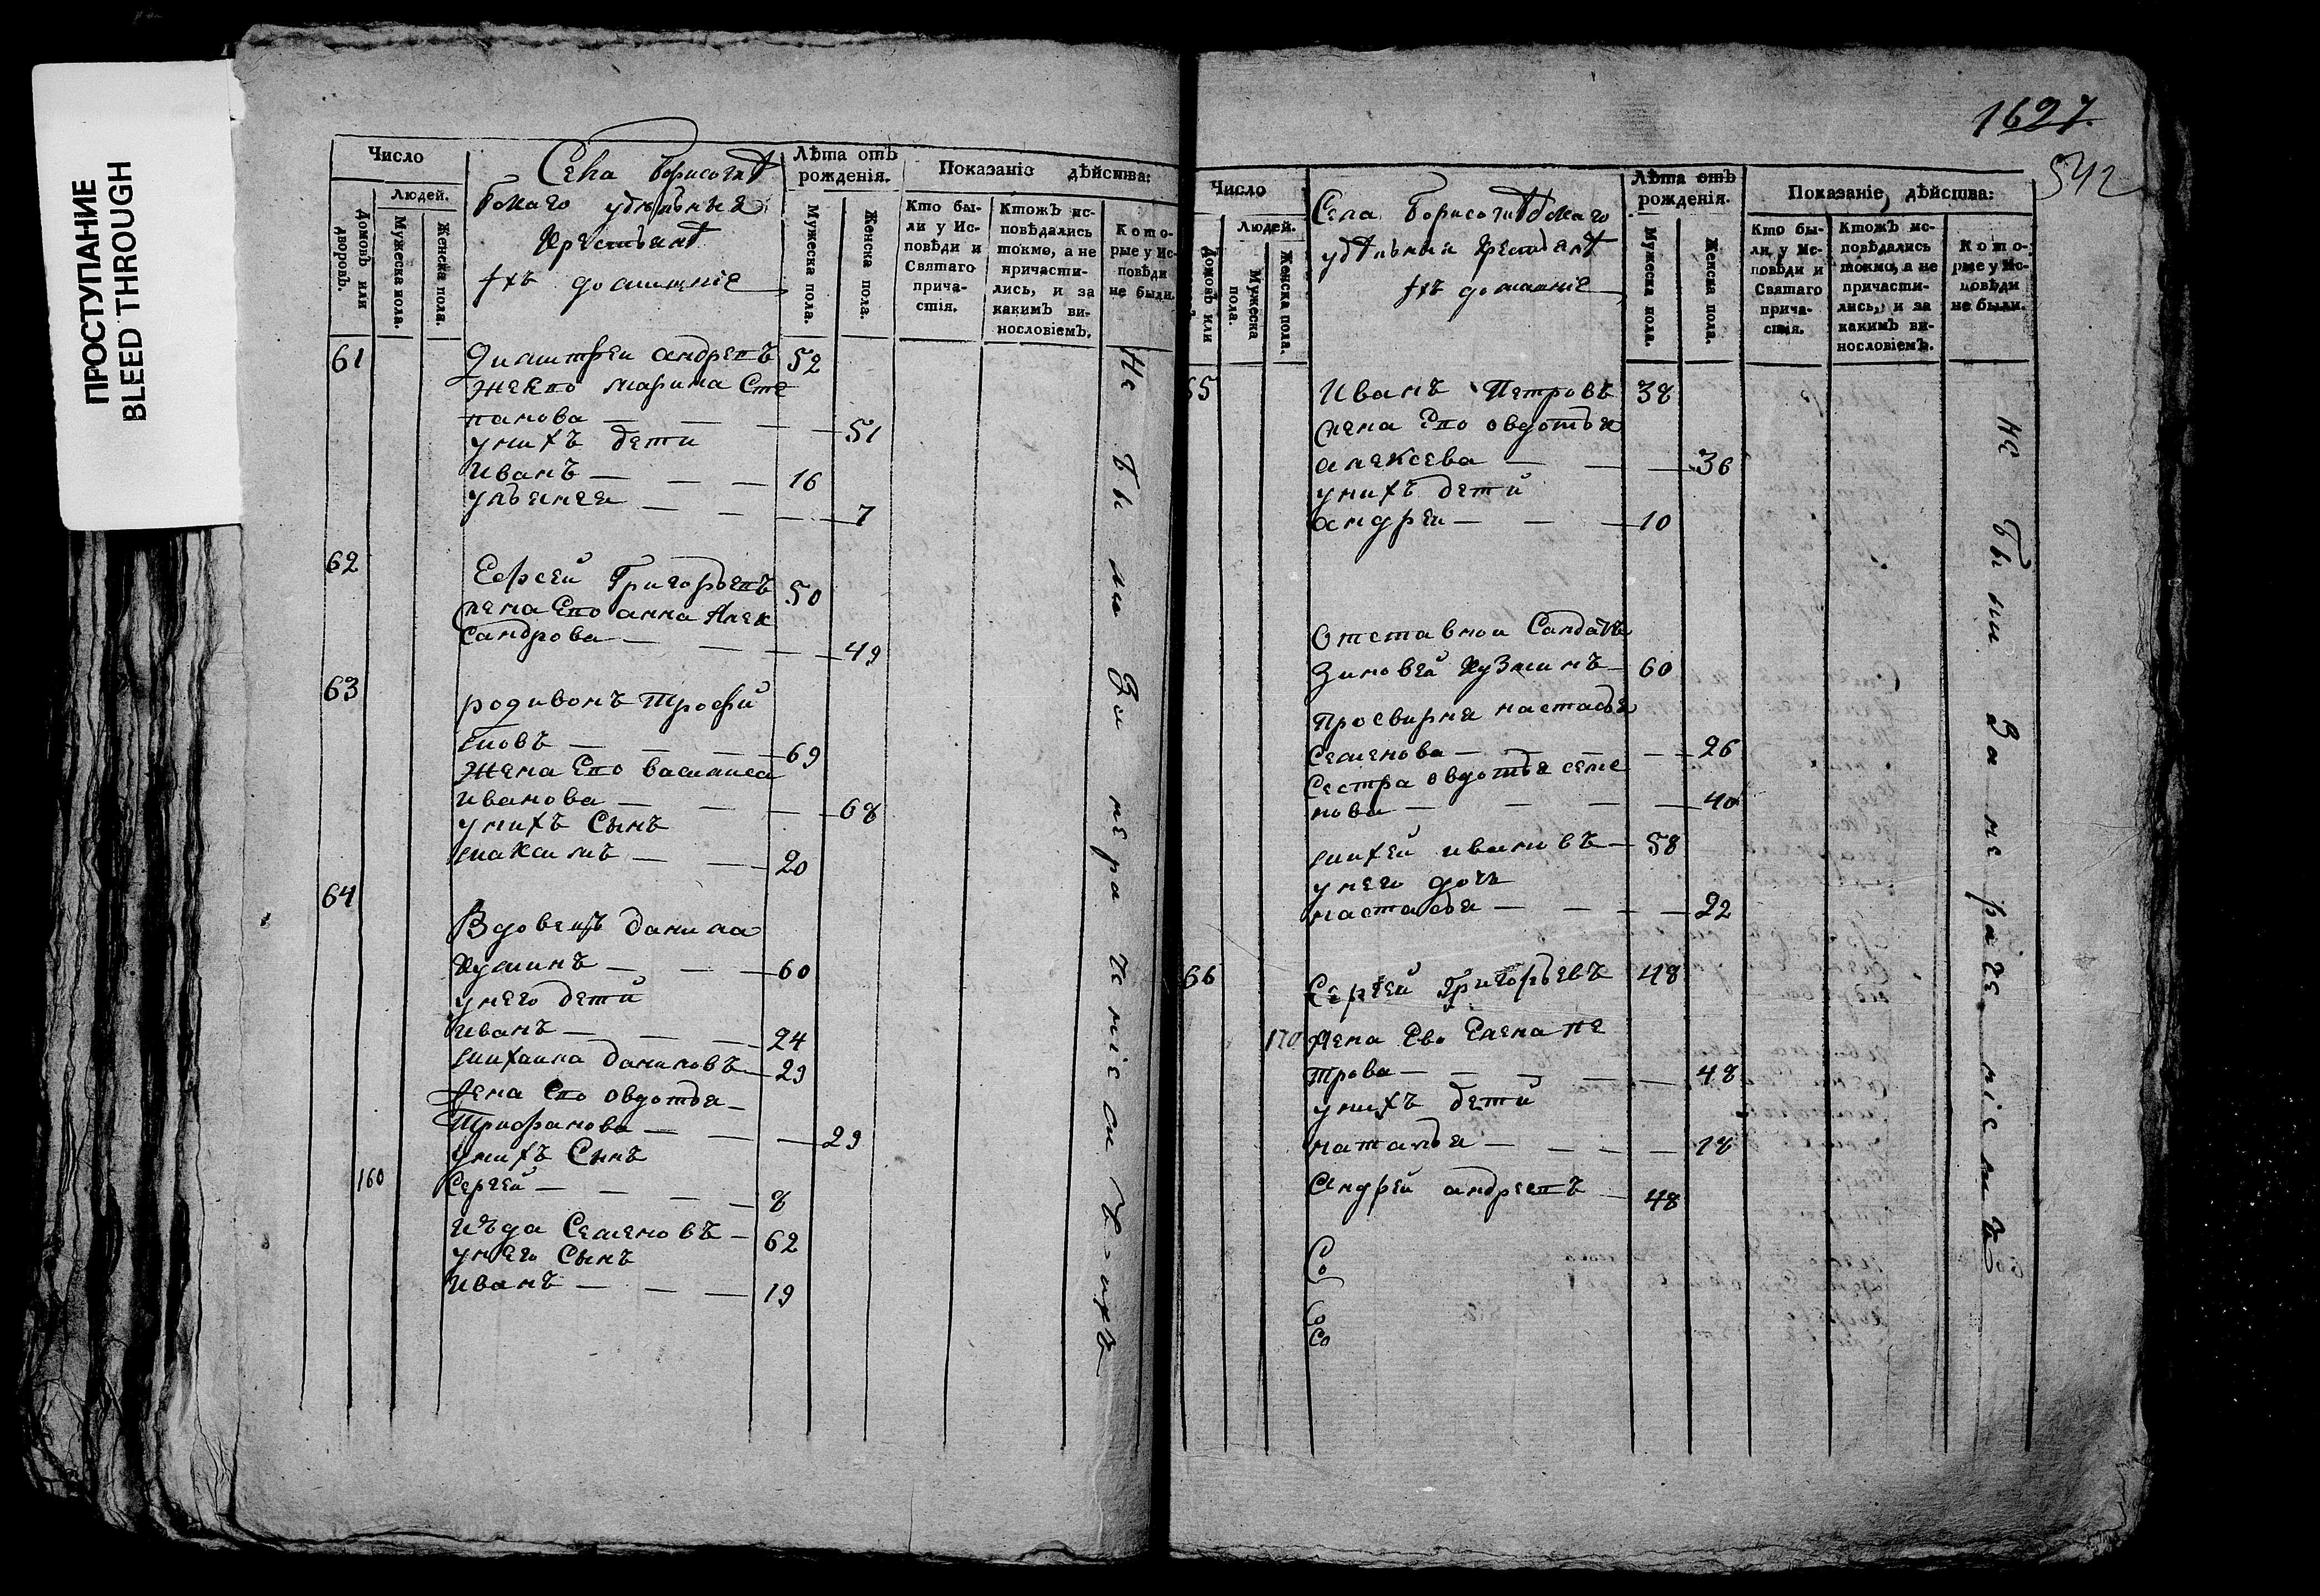 ПРОСТУПАНИЕ
BLEED THROUGH
Число
Людей.
Домовъ или дворовъ.
Мужеска пола.
Женска пола.
Села Борисоглѣ
бскаго удѣльныя
Крестьяне
ихъ домашніе
Лѣта отъ рожденія.
Мужеска пола.
Женска пола.
Показаніе дѣйства:
Кто бы-
ли у Ис-
повѣди и
Святаго
прича-
стія.
Ктожъ ис-
повѣдались
токмо, а не
причасти-
лись, и за
какимъ ви-
нословіемъ.
Кото-
рые у Ис-
повѣди
не были.
61 Димитреи андреевъ 52
жена Его марина Сте
панова — — — 51
у нихъ дети
Иванъ — — — 16
ульянея — — — 7
62
Ефсей Григорьевъ 50
жена Его анна Алек
сандрова — — — 49
63
родивонъ Трофи
мовъ — — — 69
Жена Его василиса
Иванова — — — 68
у нихъ Сынъ
максимъ — — 20
64
Вдовецъ данила
Кузминъ — — — 60
у него дети
иванъ — — — 24
михаила даниловъ — 29
жена Его овдотья —
Трифанова — — — 29
у нихъ Сынъ
160 Сергей — — — 8
Июда Семеновъ — 62
у него Сынъ
Иванъ — — — 19
Не были за нераченіемъ
1627.
542
Число
Людей.
Домовъ или
Мужеска пола.
Женска пола.
Села Борисоглѣбскаго
удѣльныи крестьяне
ихъ домашніе
Лѣта отъ рожденія.
Мужеска пола.
Женска пола.
Показаніе дѣйства:
Кто бы-
ли у Ис-
повѣди и
Святаго
прича-
стія.
Ктожъ ис-
повѣдались
токмо, а не
причасти-
лись, и за
какимъ ви-
нословіемъ.
Кото-
рые у Ис-
повѣди
не были.
65 Иванъ Петровъ 38
жена Его овдотья
алексева — — — 36
у нихъ дети
андреи — — — 10
Отставнои Салдатъ
Зиновей Кузминъ — 60
Просвирня настасья
Семенова — — — 26
Сестра овдотья семе
нова — — — 40
михей ивановъ — 58
у него дочь
настасья — — — 22
66 Сергей Григорьевъ 48
170 Жена Ево Елена пе
трова — — — 48
у нихъ дети
наталья — — — 18
Андрей андреевъ — 48
не были за нераченіемъ